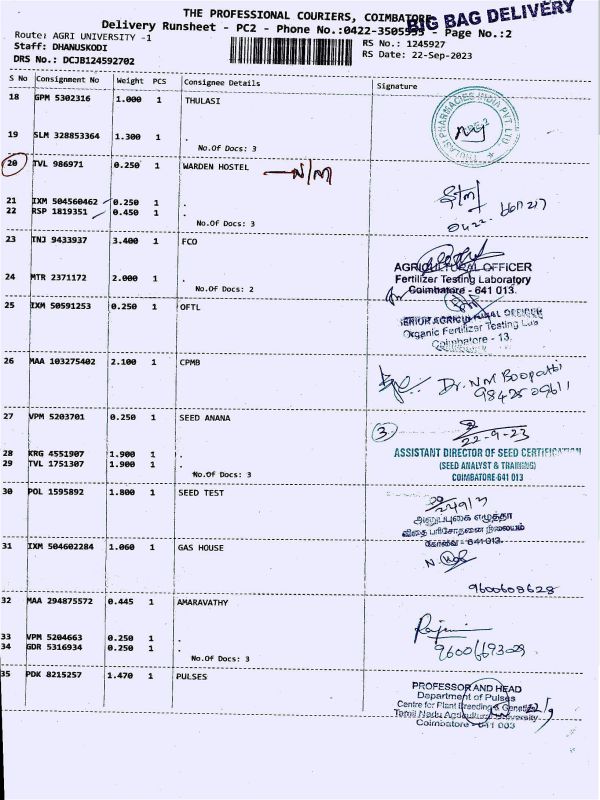 THE PROFESSIONAL COURIERS, COIMBATORE
BIG BAG DELIVERY
Delivery Runsheet - PC2 - Phone No.:0422-3505555 - Page No.:2
Route: AGRI UNIVERSITY -1
RS No.: 1245927
Staff: DHANUSKODI
RS Date: 22-Sep-2023
DRS No.: DCJB124592702
S No Consignment No Weight PCS Consignee Details Signature
18 GPM 5302316 1.000 1 THULASI
19 SLM 328853364 1.300 1 .
No.Of Docs: 3
20 TVL 986971 0.250 1 WARDEN HOSTEL N/M
21 IXM 504560462 0.250 1 .
22 RSP 1819351 0.450 1 .
No.Of Docs: 3
23 TNJ 9433937 3.400 1 FCO
AGRICULTURAL OFFICER
Fertilizer Testing Laboratory
Coimbatore - 641 013.
24 MTR 2371172 2.000 1 .
No.Of Docs: 2
25 IXM 50591253 0.250 1 OFTL
AGRICULTURAL OFFICER
Organic Fertilizer Testing Lab
Coimbatore - 13.
26 MAA 103275402 2.100 1 CPMB
Dr. NM Boopathi
27 VPM 5203701 0.250 1 SEED ANANA
3
22-9-23
28 KRG 4551907 1.900 1 .
ASSISTANT DIRECTOR OF SEED CERTIFICATION
29 TVL 1751307 1.900 1 .
(SEED ANALYST & TRAINING)
No.Of Docs: 3
COIMBATORE-641 013
30 POL 1595892 1.800 1 SEED TEST
விதை பரிசோதனை நிலையம்
கோவை - 641 013.
31 IXM 504602284 1.060 1 GAS HOUSE
9600608628
32 MAA 294875572 0.445 1 AMARAVATHY
33 VPM 5204663 0.250 1 .
34 GDR 5316934 0.250 1 .
No.Of Docs: 3
35 PDK 8215257 1.470 1 PULSES
PROFESSOR AND HEAD
Department of Pulses
Centre for Plant Breeding & Genetics
Tamil Nadu Agricultural University
Coimbatore - 641 003